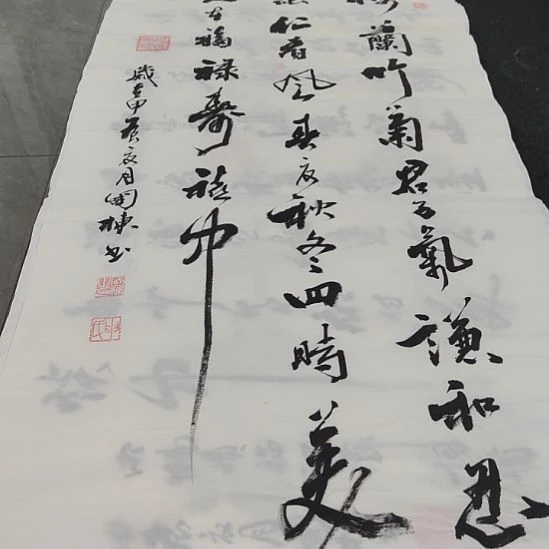 蘭竹菊君子氣謙和忍
仁者風春夏秋冬四時美
在福祿壽禧中
歲在甲辰夏月開棟书